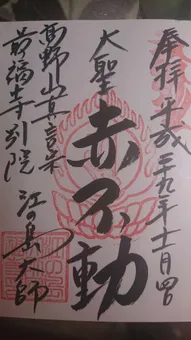 奉拝 平成二十九年十一月四日
大聖
赤不動
高野山真言宗
最福寺別院
江の島大師